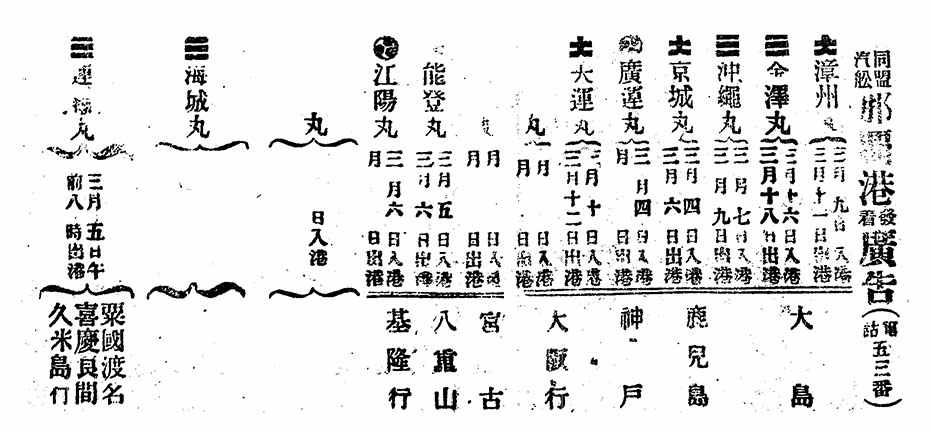 同盟汽舩
那覇港發着廣告
(電話五三番)
漳州丸
三月九日入港
三月十一日出港
金澤丸
三月十六日入港
三月十八日出港
沖繩丸
三月七日入港
三月九日出港
京城丸
三月四日入港
三月六日出港
廣運丸
三月四日入港
月日出港
大運丸
三月十日入港
三月十二日出港
丸
月日入港
月日出港
大島
鹿兒島
神戸
大阪行
丸
月日入港
月日出港
能登丸
三月五日入港
三月六日出港
江陽丸
三月六日入港
月日出港
宮古
八重山
基隆行
丸
日入港
海城丸
運海丸
三月五日午
前八時出港
粟國渡名
喜慶良間
久米島行